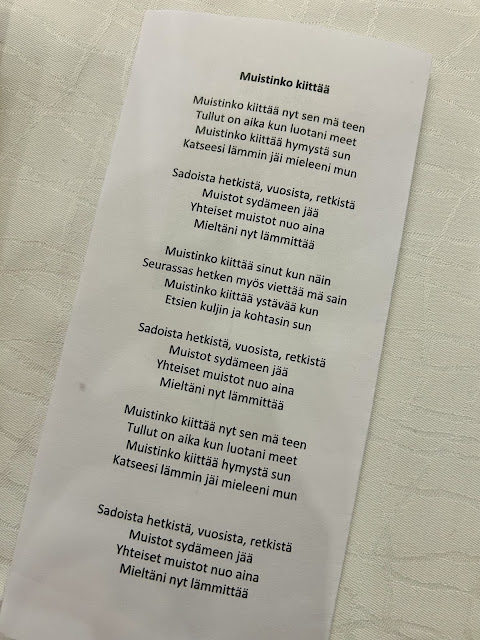 Muistinko kiittää
Muistinko kiittää nyt sen mä teen
Tullut on aika kun luotani meet
Muistinko kiittää hymystä sun
Katseesi lämmin jäi mieleeni mun
Sadoista hetkistä, vuosista, retkistä
Muistot sydämeen jää
Yhteiset muistot nuo aina
Mieltäni nyt lämmittää
Muistinko kiittää sinut kun näin
Seurassas hetken myös viettää mä sain
Muistinko kiittää ystävää kun
Etsien kuljin ja kohtasin sun
Sadoista hetkistä, vuosista, retkistä
Muistot sydämeen jää
Yhteiset muistot nuo aina
Mieltäni nyt lämmittää
Muistinko kiittää nyt sen mä teen
Tullut on aika kun luotani meet
Muistinko kiittää hymystä sun
Katseesi lämmin jäi mieleeni mun
Sadoista hetkistä, vuosista, retkistä
Muistot sydämeen jää
Yhteiset muistot nuo aina
Mieltäni nyt lämmittää